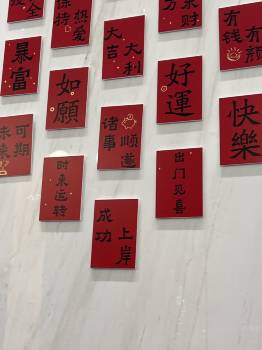 全
保持
热爱
大吉
大利
来财
有钱
有颜
暴富
如願
好運
快樂
未来
可期
诸事
顺遂
时来运转
出门见喜
成功
上岸